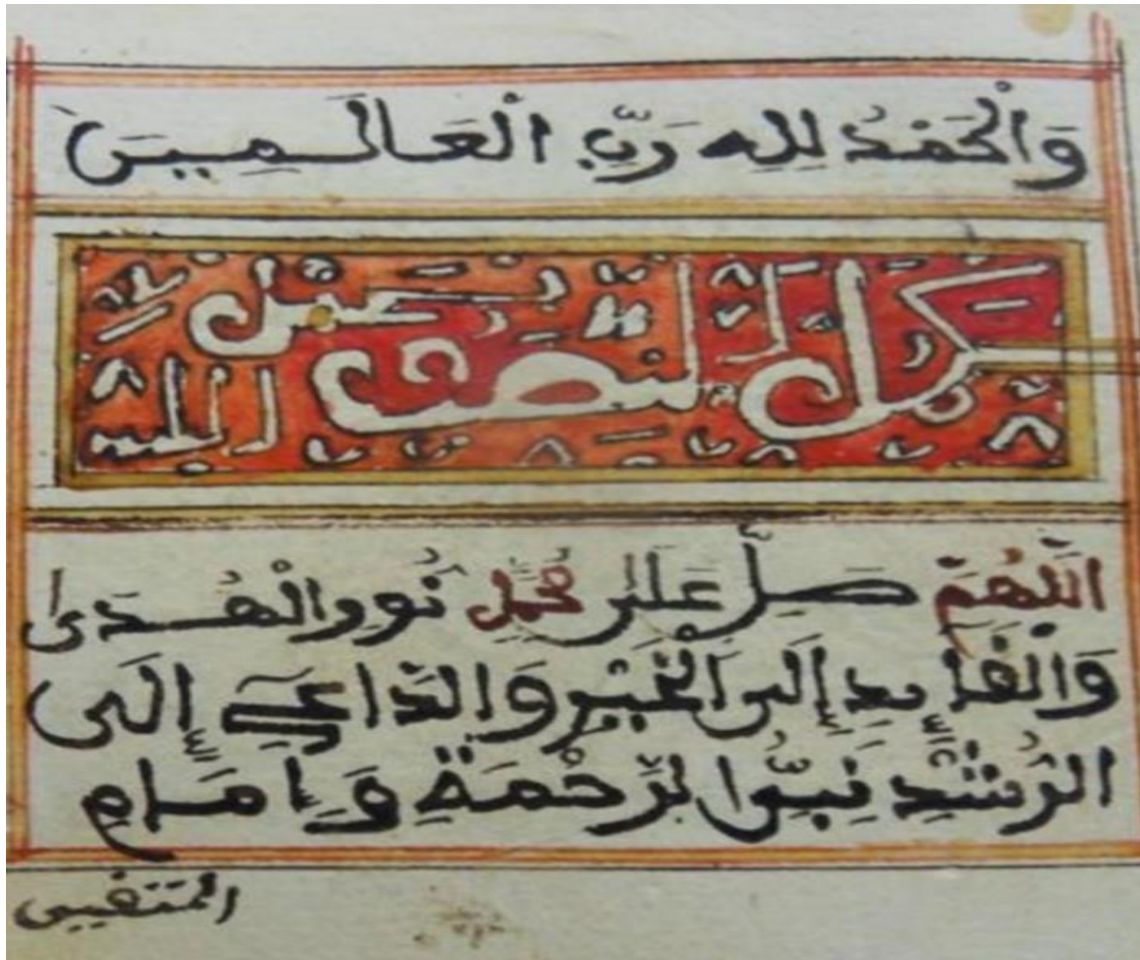 وَالْحَمْدُ لِلهِ رَبِّ الْعَالَمِينَ
كمل النصف بفضل الله
اللَّهُمَّ صَلِّ عَلَى مُحَمَّدٍ نُورِ الْهُدَى
وَالْقَائِدِ إِلَى الْخَيْرِ وَالدَّاعِي إِلَى
الرُّشْدِ نَبِيِّ الرَّحْمَةِ وَإِمَامِ
المتقين